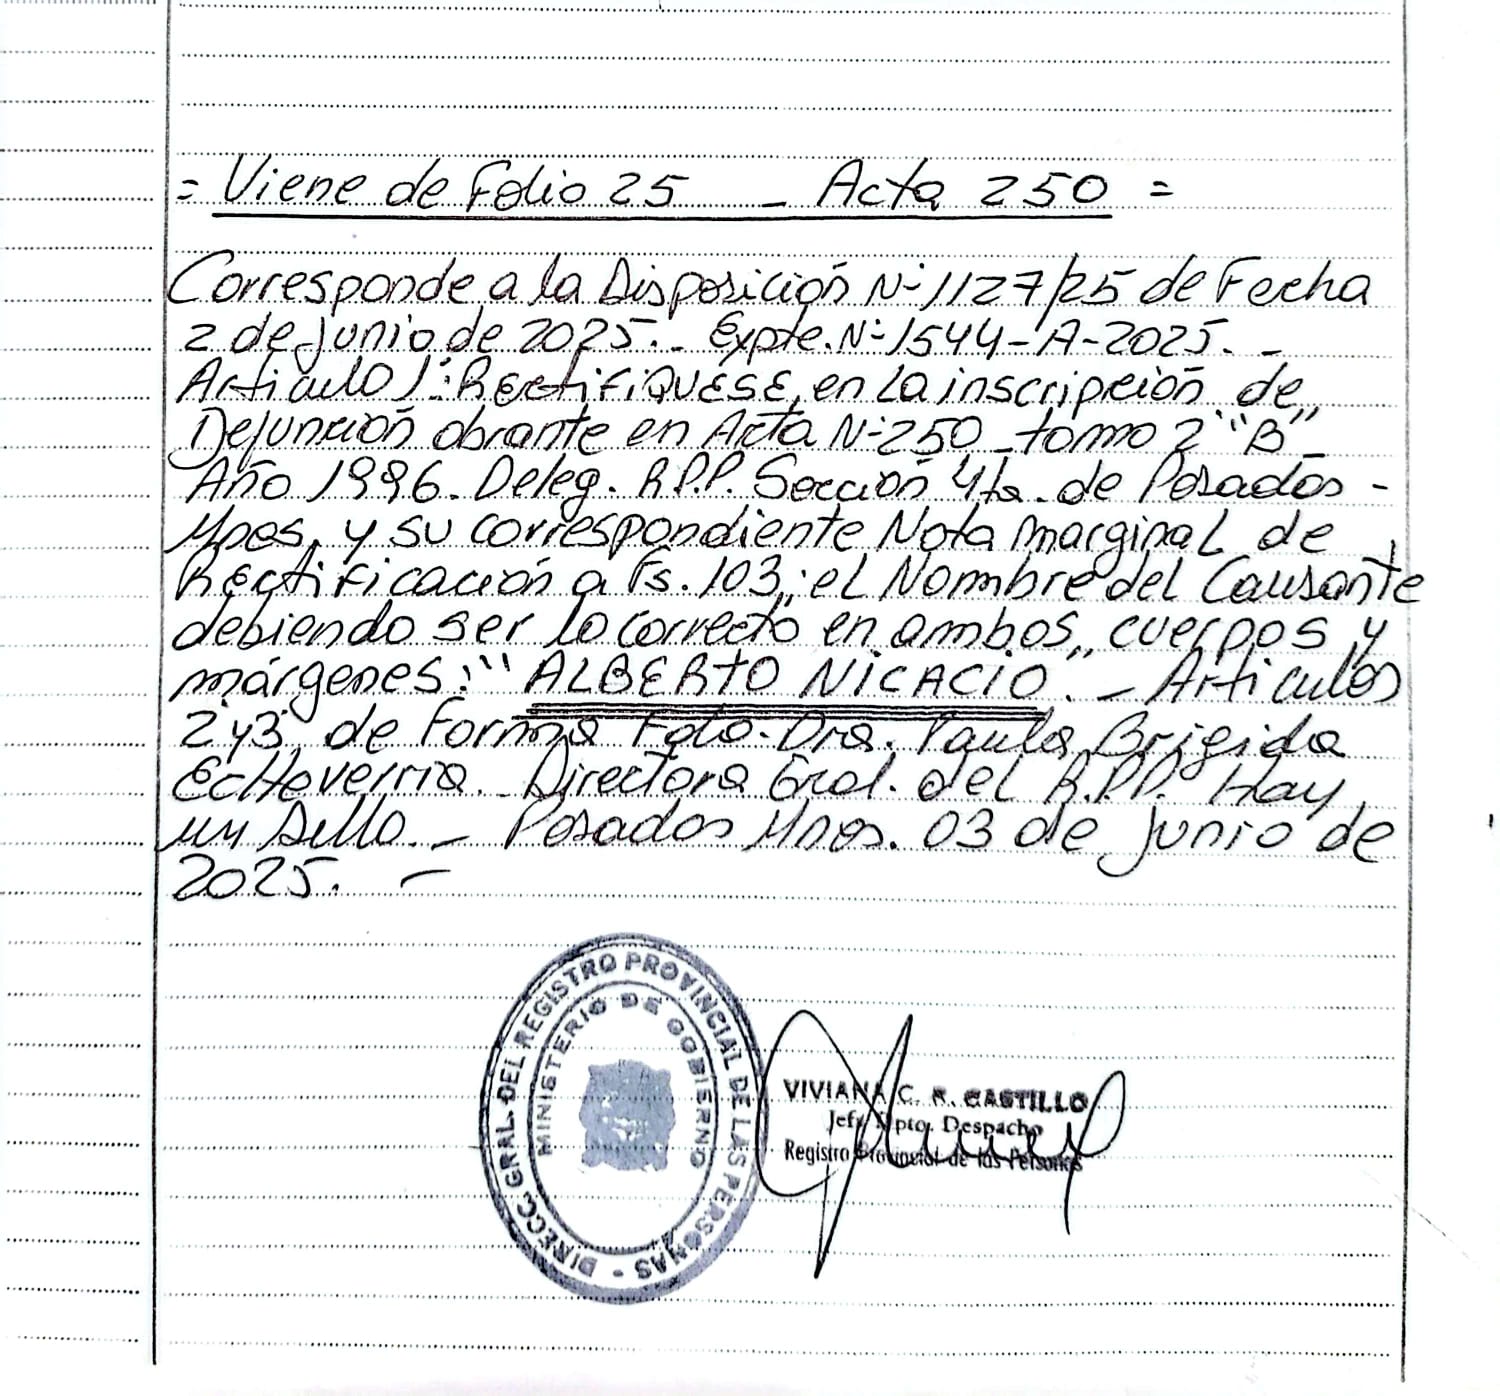 = Viene de Folio 25 - Acta 250 =
Corresponde a la Disposición N° 1127/25 de Fecha
2 de junio de 2025.- Expte. N° 1544-A-2025.-
Articulo 1°: RECTIFIQUESE, en la inscripción de
Defunción obrante en Acta N° 250 - tomo 2 "B"
Año 1996. Deleg. R.P.P. Sección 4ta. de Posadas -
Mnes, y su correspondiente Nota marginal de
Rectificación a Fs. 103; el Nombre del Causante
debiendo ser lo correcto en ambos, cuerpos y
márgenes: "ALBERTO NICACIO".- Articulos
2 y 3, de Forma Fdo- Dra. Paula Brigida
Echeverria.- Directora Gral. del R.P.P. Hay
un Sello.- Posadas Mnes. 03 de junio de
2025.-
DIRECC. GRAL. DEL REGISTRO PROVINCIAL DE LAS PERSONAS -
MINISTERIO DE GOBIERNO
VIVIANA C. R. CASTILLO
Jefe Dpto. Despacho
Registro Provincial de las Personas